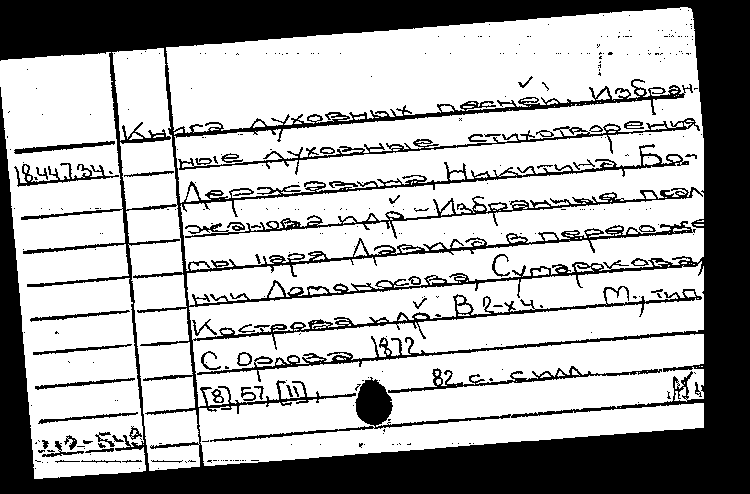 Книга духовных песней. Избран-
18.447.34. ные духовные стихотворения
Державина, Никитина, Бо-
жанова и др. - Избранные псал-
мы царя Давида в переложе-
нии Ломоносова, Сумарокова,
Кострова и др. В 2-х ч. М., тип.
С. Орлова, 1872.
[8], 57, [11], 82 с. с илл.